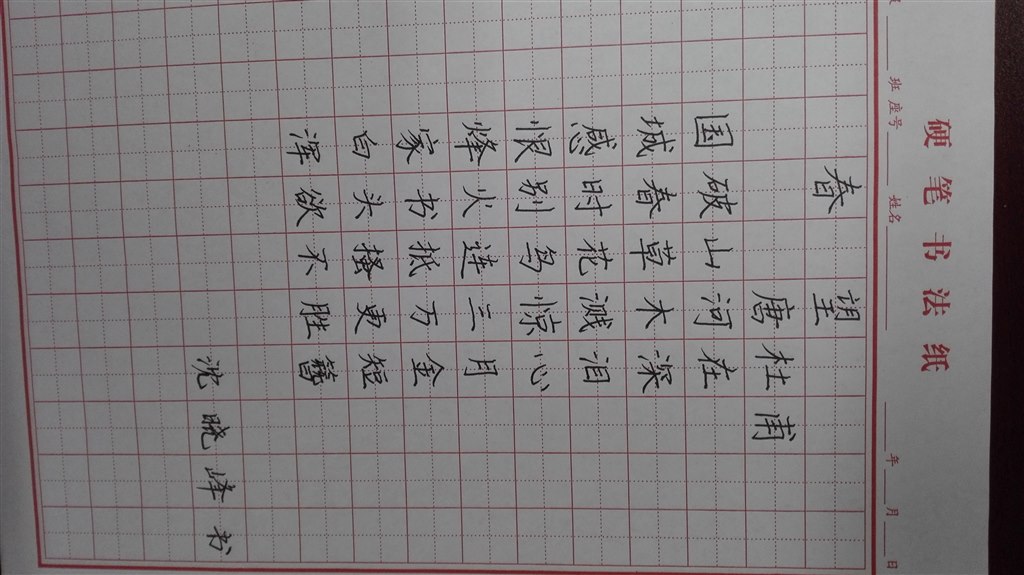 硬笔书法纸
班 座号 姓名 年 月 日
春望
唐杜甫
国破山河在
城春草木深
感时花溅泪
恨别鸟惊心
烽火连三月
家书抵万金
白头搔更短
浑欲不胜簪
沈晓峰书